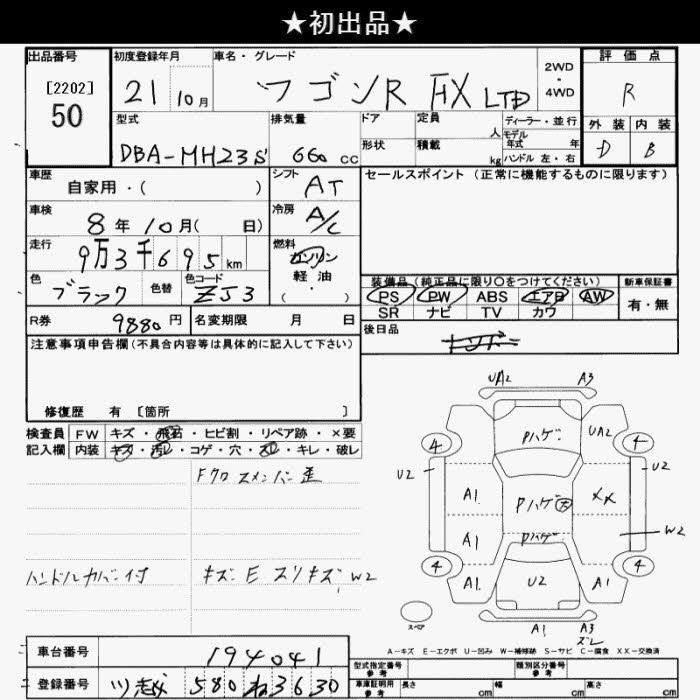 ★初出品★
出品番号
[2202]
50
初度登録年月
21 10月
車名・グレード
ワゴンR FX LTD
2WD
・
4WD
評価点
R
外装 内装
D B
型式
DBA-MH23S
排気量
660 cc
ドア
形状
定員 人
積載 kg
ディーラー・並行
モデル
年式 年
ハンドル 左・右
車歴
自家用・( )
シフト
AT
車検
8年10月( 日)
冷房
A/C
走行
9万3千695km
燃料
ガソリン
軽油
( ・ )
色
ブラック
色替
色コード
ZJ3
R券 9880円
名変期限 月 日
セールスポイント(正常に機能するものに限ります)
装備品(純正品に限り○をつけてください)
PS PW ABS エアB AW
SR ナビ TV カワ
新車保証書
有・無
後日品
注意事項申告欄(不具合内容等は具体的に記入して下さい)
修復歴 有 [箇所 ]
検査員 FW キズ・飛石・ヒビ割・リペア跡・×要
記入欄 内装 キズ・汚レ・コゲ・穴・スレ・キレ・破レ
Fクロスメンバー歪
ハンドルカバー付
キズ E スリキズ W2
UA2 A3
Pハゲ UA2
4 4
U2 U2
A1 Pハゲ大 XX
W2
A1 Pハゲ
4 4
A1 U2 A1
スペア
A1 A3
ズレ
A-キズ E-エクボ U-凹み W-補修跡 S-サビ C-腐食 XX-交換済
車台番号 194041
登録番号 580 ね 3630
型式指定番号
参考
類別区分番号
参考
車庫証明用
参考
長さ cm 幅 cm 高さ cm